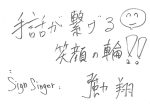 手話が繋げる
笑顔の輪!!
Sign Singer.
強力 翔